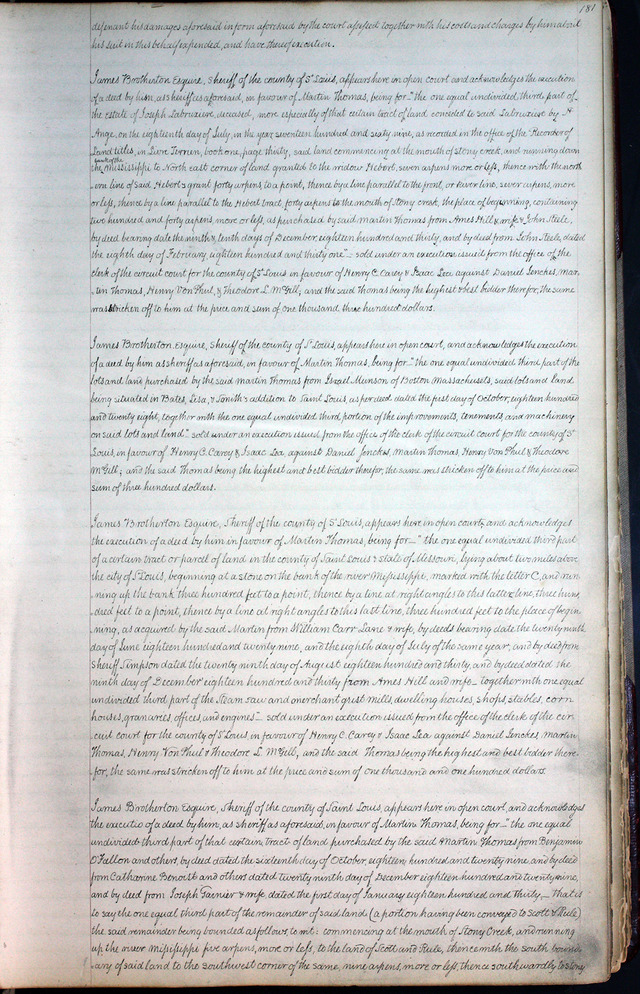 181
defenant his damages aforesaid in form aforesaid by the court assessed together with his costs and charges by him about
his suit in this behalf expended, and have thereof execution.
James Brotherton Esquire, Sheriff of the county of St Louis, appears here in open court and acknowledges the execution
of a deed by him, as sheriff as aforesaid, in favour of Martin Thomas, being for—" the one equal undivided third part of
the estate of Joseph Labruxiere, deceased, more especially of that certain tract of land conceded to said Labruxiere by St
Ange, on the eighteenth day of July, in the year seventeen hundred and sixty nine, as recorded in the office of the Recorder of
Land titles, in Livre Terrien, book one, page thirty, said land commencing at the mouth of stony creek, and running down
bank of the
the Mississippi to North east corner of land granted to the widow Hebert, seven arpens more or less, thence with the north
ern line of said Hebert's grant forty arpens, to a point, thence by a line parallel to the front, or river line, seven arpens, more
or less, thence by a line parallel to the Hebert tract forty arpens to the mouth of stony creek, the place of beginning, containing
two hundred and forty arpens, more or less, as purchased by said Martin Thomas from Ames Hill & wife & John Steele,
by deed bearing date the ninth & tenth days of December, eighteen hundred and thirty, and by deed from John Steele, dated
the eighth day of February, eighteen hundred and thirty one"— sold under an execution issued from the office of the
clerk of the circuit court for the county of St Louis in favour of Henry C. Carey & Isaac Lea against Daniel Jenckes, Mar
tin Thomas, Henry Von Phul, & Theodore L. McGill; and the said Thomas being the highest & best bidder therefor, the same
was stricken off to him at the price and sum of one thousand, three hundred dollars.
James Brotherton Esquire, Sheriff of the county of St Louis, appears here in open court, and acknowledges the execution
of a deed by him as sheriff as aforesaid, in favour of Martin Thomas, being for—" the one equal undivided third part of the
lots and land purchased by the said Martin Thomas from Israel Munson of Boston Massachusets, said lots and land
being situated in Bates, Lisa, & Smith's addition to Saint Louis, as per deed dated the first day of October, eighteen hundred
and twenty eight, together with the one equal undivided third, portion of the improvements, tenements, and machinery
on said lots and land" sold under an execution issued from the office of the clerk of the circuit court for the county of St
Louis, in favour of Henry C. Carey & Isaac Lea, against Daniel Jenckes, Martin Thomas, Henry Von Phul & Theodore
McGill; and the said Thomas being the highest and best bidder therefor, the same was stricken off to him at the price and
sum of three hundred dollars.
James Brotherton Esquire, Sheriff of the county of St Louis, appears here in open court, and acknowledges
the execution of a deed by him in favour of Martin Thomas, being for—" the one equal undivided third part
of a certain tract or parcel of land in the county of Saint Louis & state of Missouri, lying about two miles above
the city of St Louis, beginning at a stone on the bank of the river Mississippi, marked with the letter C, and run
ning up the bank three hundred feet to a point, thence by a line at right angles to this latter line, three hun
dred feet to a point, thence by a line at right angles to this last line, three hundred feet to the place of begin
ning, as acquired by the said Martin from William Carr Lane & wife, by deeds bearing date the twenty ninth
day of June eighteen hundred and twenty nine, and the eighth day of July of the same year, and by died from
Sheriff Simpson dated the twenty ninth day of August eighteen hundred and thirty, and by deed dated the
ninth day of December eighteen hundred and thirty from Ames Hill and wife— together with one equal
undivided third part of the steam saw and merchant grist mills, dwelling houses, shops, stables, corn
houses, granaries, offices, and engines"— sold under an execution issued from the office of the clerk of the cir
cuit court for the county of St Louis, in favour of Henry C. Carey & Isaac Lea against Daniel Jenckes, Martin
Thomas, Henry Von Phul & Theodore L. McGill, and the said Thomas being the highest and best bidder there
for, the same was stricken off to him at the price and sum of one thousand and one hundred dollars.
James Brotherton Esquire, Sheriff of the county of Saint Louis, appears here in open court, and acknowledges
the executio of a deed by him, as sheriff as aforesaid, in favour of Martin Thomas, being for—" the one equal
undivided third part of that certain tract of land purchased by the said Martin Thomas from Benjamin
O'Fallon and others, by deed dated the sixteenth day of October, eighteen hundred and twenty nine, and by deed
from Catharine Benoist and others dated twenty ninth day of December eighteen hundred and twenty nine,
and by deed from Joseph Garnier & wife dated the first day of January eighteen hundred and thirty,— that is
to say the one equal third part of the remainder of said land (a portion having been conveyed to Scott & Rule)
the said remainder being bounded as follows, to wit: commencing at the mouth of Stony Creek, and running
up the river Missisippi five arpens, more or less, to the land of Scott and Rule, thence with the south bound
ary of said land to the southwest corner of the same, nine arpens, more or less, thence southwardly to stony